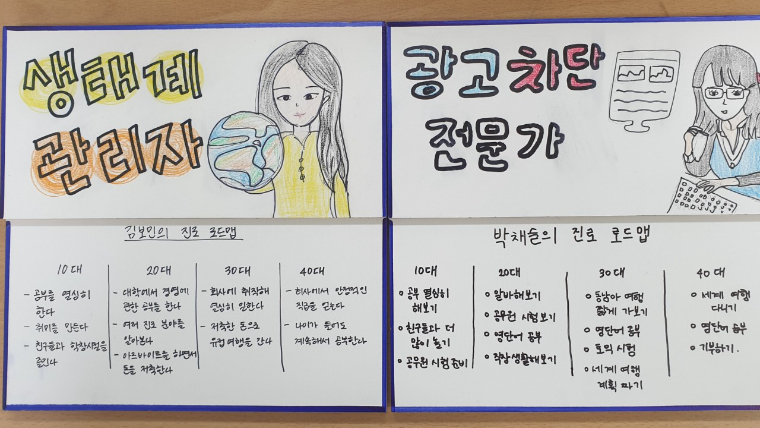 생태계
관리자
광고차단
전문가
김보민의 진로 로드맵
10대
- 공부를 열심히
한다
- 취미를 만든다
- 친구들과 학창시절을
즐긴다
20대
- 대학에서 경영에
관한 공부를 한다
- 여러 진로 분야를
알아본다
- 아르바이트를 하면서
돈을 저축한다
30대
- 회사에 취직해
열심히 일한다
- 저축한 돈으로
유럽여행을 간다
40대
- 회사에서 안정적인
직급을 얻는다
- 나이가 들어도
계속해서 공부한다
박채솔의 진로 로드맵
10대
공부 열심히
해보기
친구들과 더
많이 놀기
공무원 시험 준비
20대
알바해보기
공무원 시험보기
영단어 공부
직장생활해보기
30대
동남아 여행
짧게 가보기
영단어 공부
토익 시험
세계 여행
계획 짜기
40대
세계 여행
다니기
영단어 공부
기부하기.